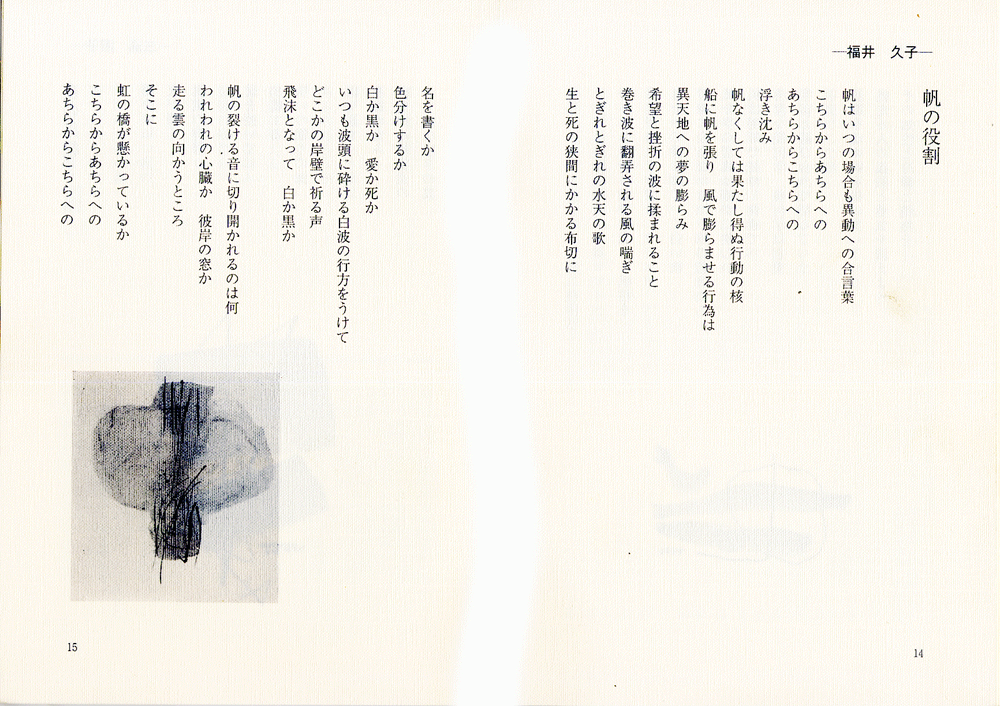 ―福井　久子―
帆の役割
帆はいつの場合も異動への合言葉
こちらからあちらへの
あちらからこちらへの
浮き沈み
帆なくしては果たし得ぬ行動の核
船に帆を張り　風で膨らませる行為は
異天地への夢の膨らみ
希望と挫折の波に揉まれること
巻き波に翻弄される風の喘ぎ
とぎれとぎれの水天の歌
生と死の狭間にかかる布切に
14
名を書くか
色分けするか
白か黒か　愛か死か
いつも波頭に砕ける白波の行方をうけて
どこかの岸壁で祈る声
飛沫となって　白か黒か
帆の裂ける音に切り開かれるのは何
われわれの心臓か　彼岸の窓か
走る雲の向かうところ
そこに
虹の橋が懸かっているか
こちらからあちらへの
あちらからこちらへの
15